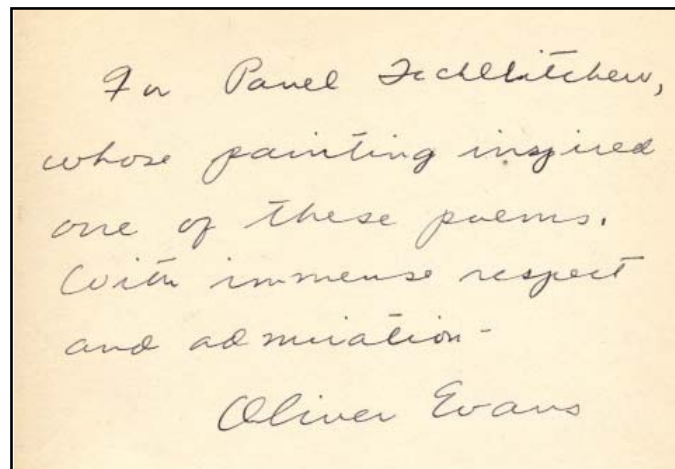 For Pavel Tchelitchew,
whose painting inspired
one of these poems.
With immense respect
and admiration-
Oliver Evans